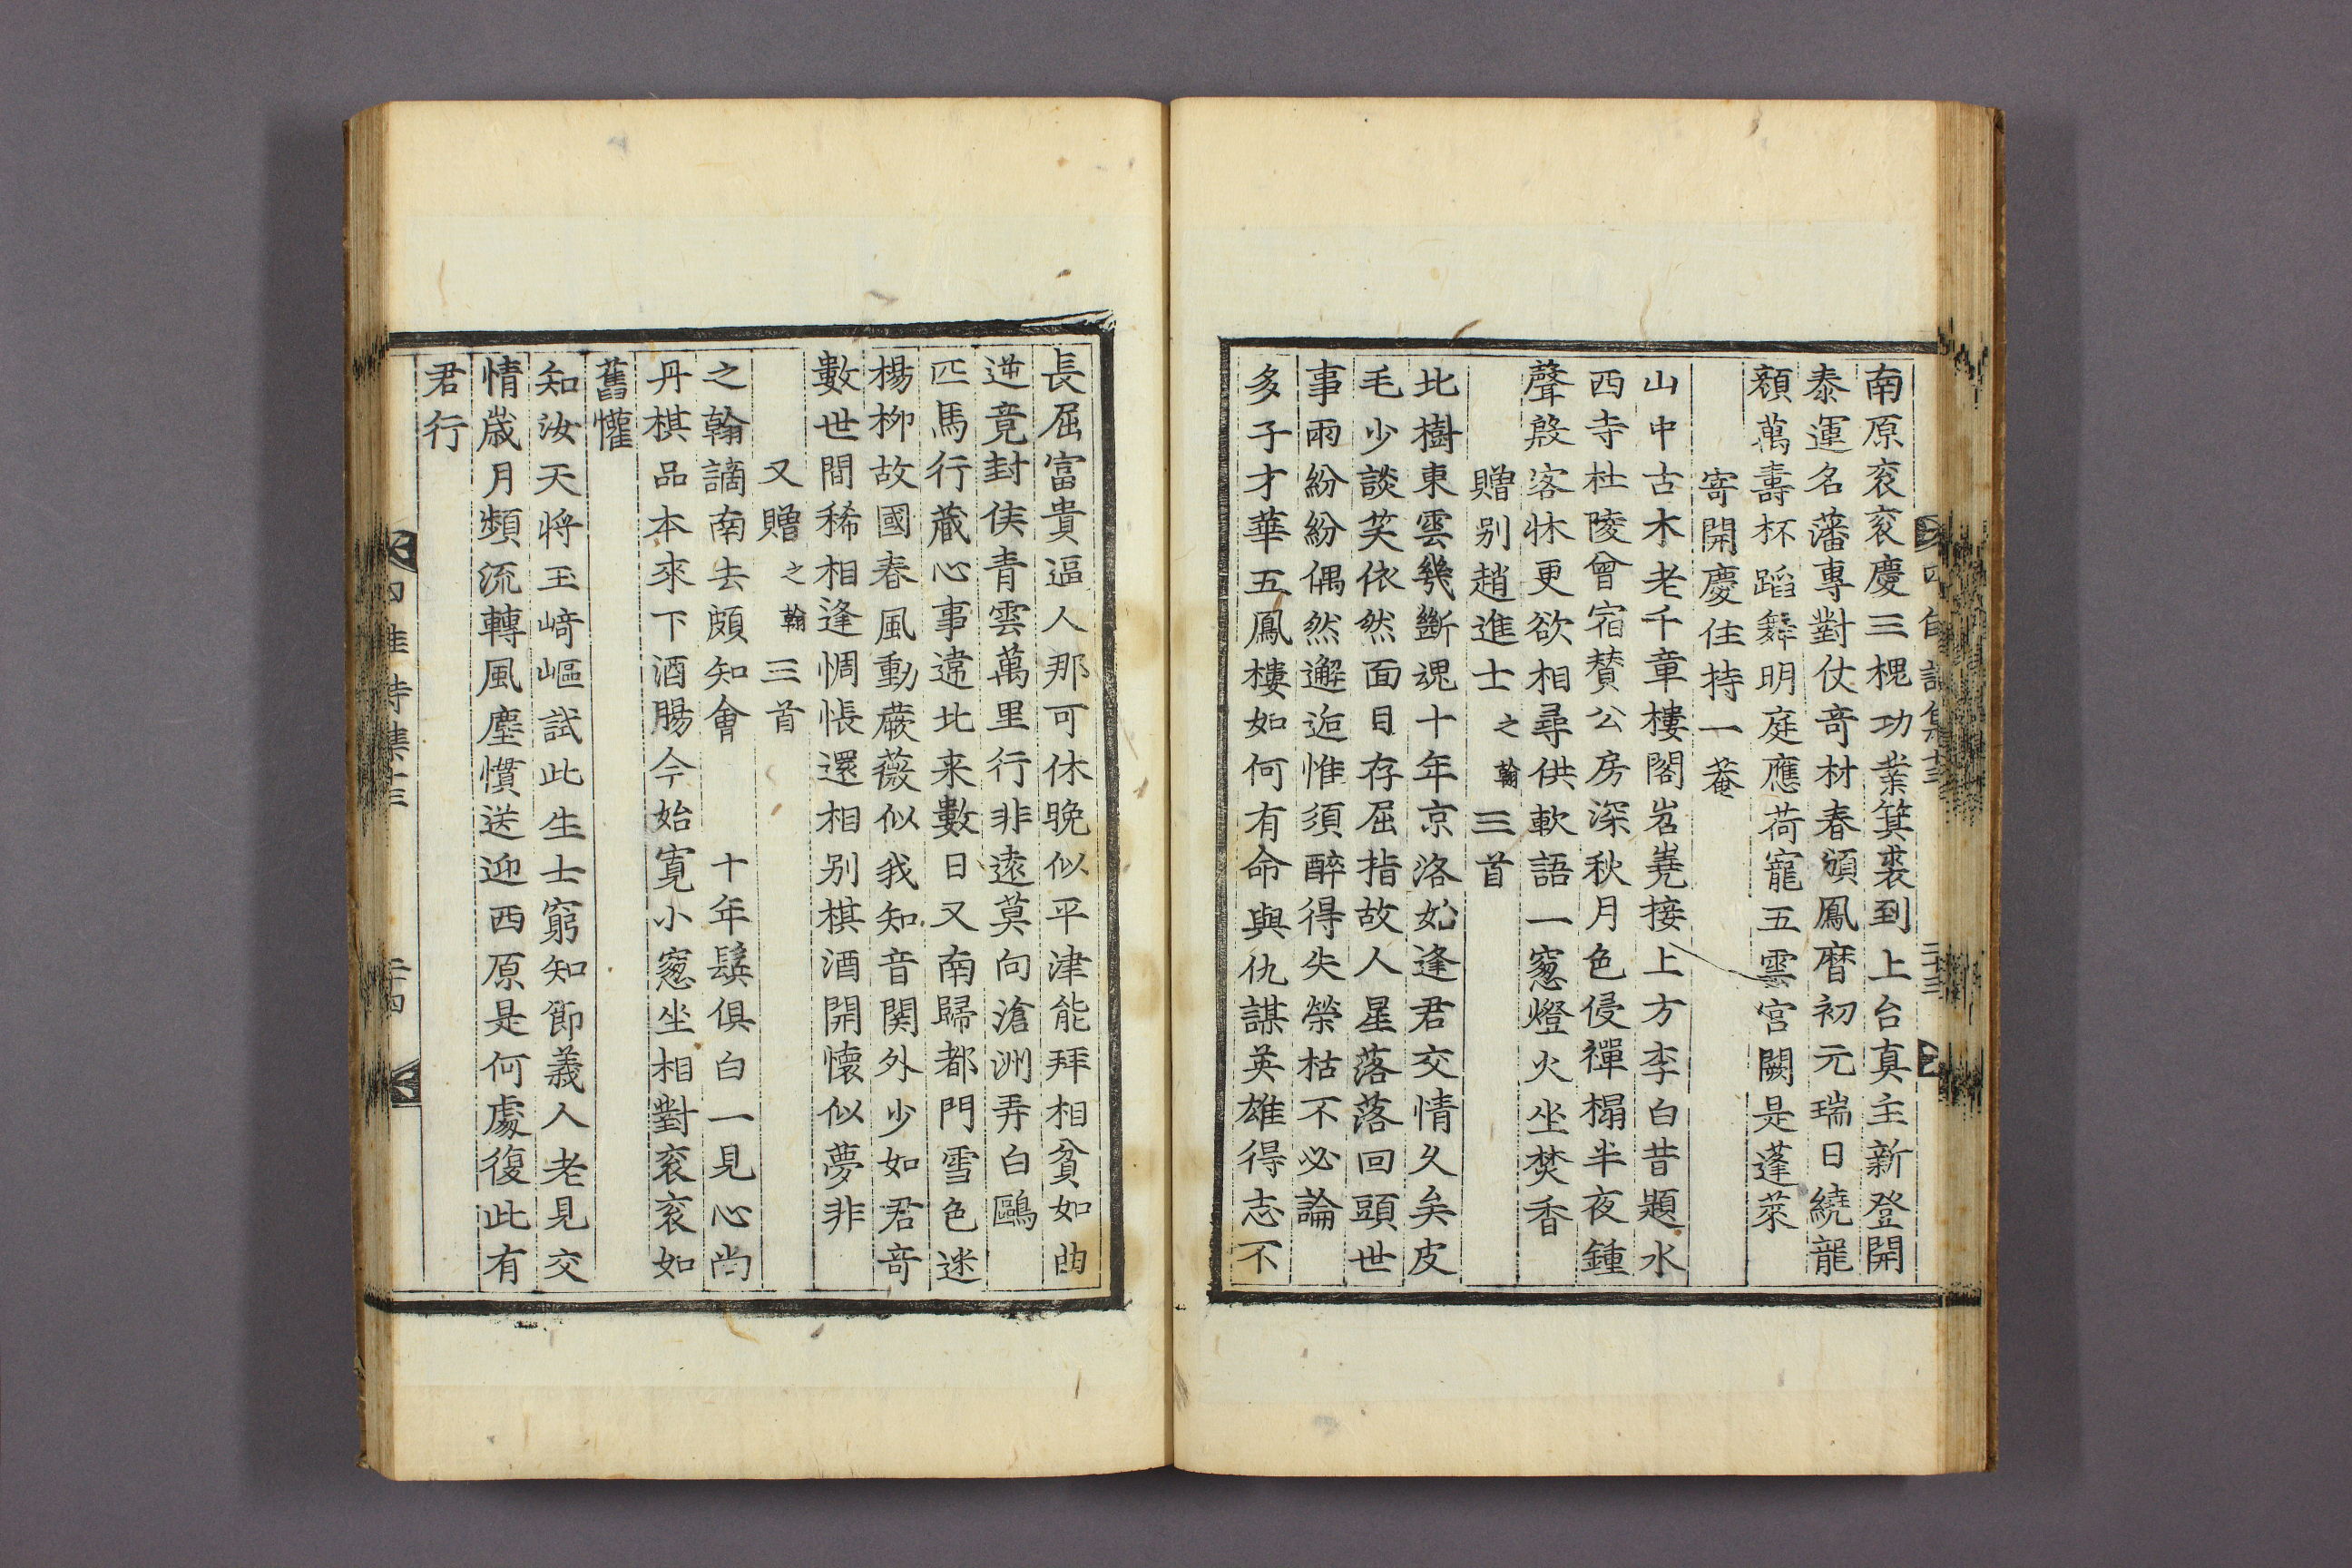 南原衮衮慶三槐功業箕裘到上台真主新登開
泰運名藩專對仗奇材春頒鳳曆初元瑞日繞龍
顔萬壽杯蹈舞明庭應荷寵五雲宮闕是蓬萊
寄開慶住持一菴
山中古木老千章樓閣岧嶤接上方李白昔題水
西寺杜陵曾宿贊公房深秋月色侵禪榻半夜鍾
聲殷客牀更欲相尋供軟語一窓燈火坐焚香
贈别趙進士之翰三首
北樹東雲幾斷魂十年京洛妐逢君交情久矣皮
毛少談笑依然面目存屈指故人星落落回頭世
事雨紛紛偶然邂逅惟須醉得失榮枯不必論
多子才華五鳳樓如何有命與仇謀英雄得志不
長屈富貴逼人那可休晚似平津能拜相貧如曲
逆竟封侯青雲萬里行非遠莫向滄洲弄白鷗
匹馬行蔵心事違北来數日又南歸都門雪色迷
楊柳故國春風動蕨薇似我知音関外少如君奇
數世間稀相逢惆悵還相别棋酒開懷似夢非
又贈之翰三首
之翰謫南去頗知會 十年鬂俱白一見心尚
丹棋品本來下酒腸今始寛小窓坐相對衮衮如
舊懽
知汝天将玉﨑嶇試此生士窮知節義人老見交
情歳月頻流轉風塵慣送迎西原是何處復此有
君行
四佳詩集十三 二十四